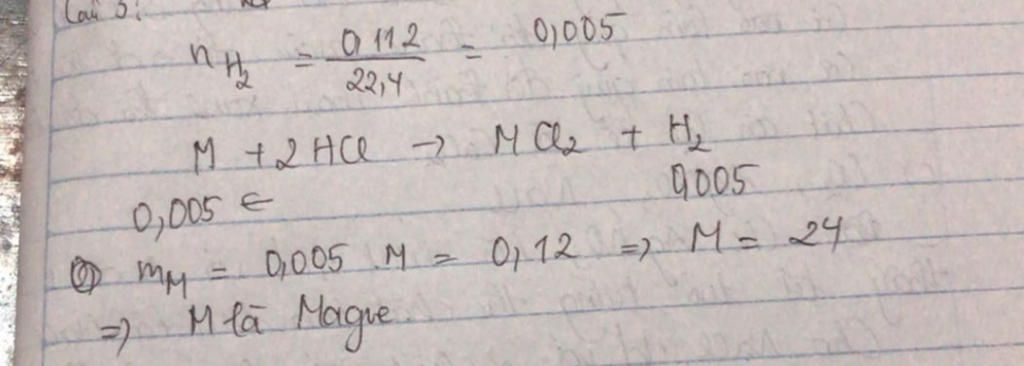 Câu 3:
nH₂ = 0,112/22,4 = 0,005
M + 2HCl → MCl₂ + H₂
0,005 ← 0,005
mM = 0,005 . M = 0,12 => M = 24
=> M là Magie.